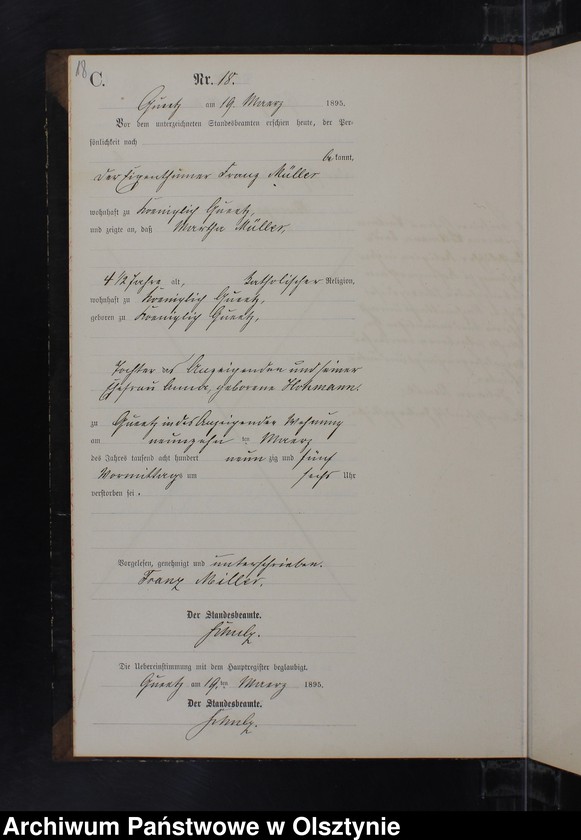 18
C.
Nr. 18.
Gueetz am 19 Maerz 1895.
Vor dem unterzeichneten Standesbeamten erschien heute, der Per-
sönlichkeit nach
bekannt,
der Eigenthümer Franz Müller
wohnhaft zu Koeniglich Gueetz,
und zeigte an, daß Martha Müller,
4 1/2 Jahre alt, katholischer Religion,
wohnhaft zu Koeniglich Gueetz,
geboren zu Koeniglich Gueetz,
Tochter des Anzeigenden und seiner
Ehefrau geborene
zu Gueetz in des Anzeigenden Wohnung
am neunzehnten Maerz
des Jahres tausend acht hundert neunzig und fünf
Vormittags um sechs Uhr
verstorben sei.
Vorgelesen, genehmigt und unterschrieben.
Franz Müller.
Der Standesbeamte.
Schulz.
Die Uebereinstimmung mit dem Hauptregister beglaubigt.
Gueetz am 19ten Maerz 1895.
Der Standesbeamte.
Schulz.
Archiwum Państwowe w Olsztynie